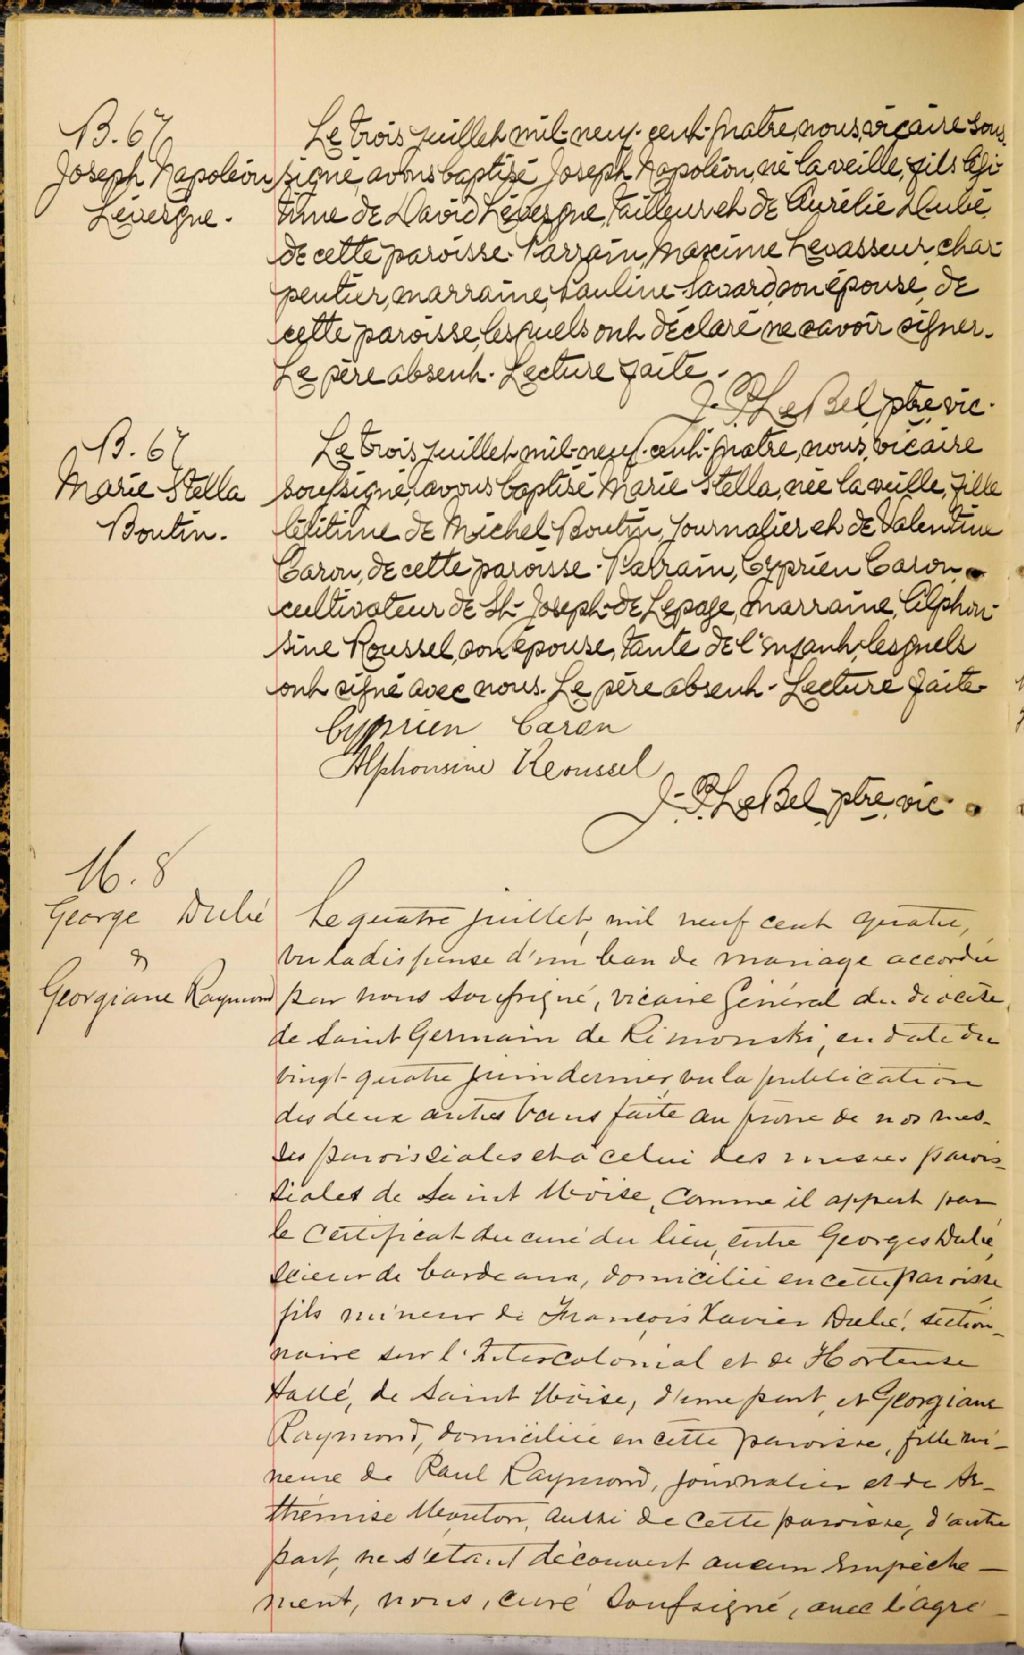 B. 67
Joseph Napoléon
Lévesque.
Le trois juillet mil-neuf-cent-quatre, nous, vicaire sous
signé, avons baptisé Joseph Napoléon, né la veille, fils légi-
time de David Lévesque, tailleur et de Aurélie Dubé,
de cette paroisse. Parrain, Maxime Levasseur, char-
pentier, marraine, Pauline Savard, son épouse, de
cette paroisse, lesquels ont déclaré ne savoir signer.
Le père absent. Lecture faite.
J. P. LeBel, ptre vic.
B. 67
Marie Stella
Boutin.
Le trois juillet mil-neuf-cent-quatre, nous, vicaire
soussigné, avons baptisé Marie Stella, née la veille, fille
légitime de Michel Boutin, journalier et de Valentine
Caron, de cette paroisse. Parrain, Cyprien Caron,
cultivateur de St-Joseph-de-Lepage, marraine, Alphon-
sine Roussel, son épouse, tante de l'enfant, lesquels
ont signé avec nous. Le père absent. Lecture faite.
Cyprien Caron
Alphonsine Roussel
J. P. LeBel, ptre, vic.
M. 8
George Dubé
&
Georgiane Raymond
Le quatre juillet, mil neuf cent quatre,
vu la dispense d'un ban de mariage accordée
par nous soussigné, vicaire Général du diocèse
de Saint Germain de Rimouski, en date du
vingt-quatre juin dernier, vu la publication
des deux autres bans faite au prône de nos mes-
ses paroissiales et à celui des messes parois-
siales de Saint Moïse, comme il appert par
le certificat du curé du lieu, entre Georges Dubé,
scieur de bardeaux, domicilié en cette paroisse,
fils mineur de François Xavier Dubé, section-
naire sur l'Intercolonial et de Hortense
Hallé, de Saint Moïse, d'une part, et Georgiane
Raymond, domiciliée en cette paroisse, fille mi-
neure de Paul Raymond, journalier et de Ar-
thémise Mouton, aussi de cette paroisse, d'autre
part, ne s'étant découvert aucun empêche-
ment, nous, curé soussigné, avec l'agré-